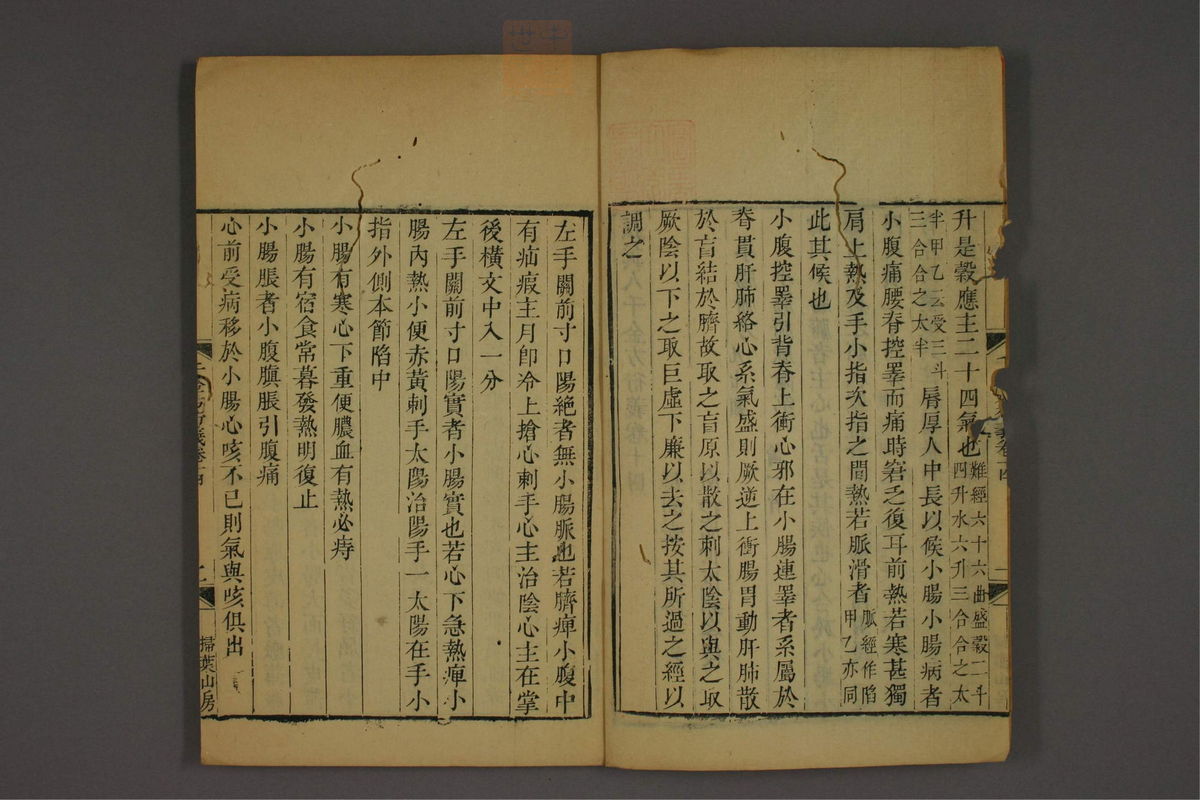 升是穀應主二十四氣也難經六十六曲盛穀二斗四升水六升三合合之太
半甲乙云受三斗三合合之太半唇厚人中長以候小腸小腸病者
小腹痛腰脊控睪而痛時窘之復耳前熱若寒甚獨
肩上熱及手小指次指之間熱若脈滑者脈經作陷甲乙亦同
此其候也
小腹控睪引背脊上衝心邪在小腸連睪者系屬於
脊貫肝肺絡心系氣盛則厥逆上衝腸胃動肝肺散
於肓結於臍故取之肓原以散之刺太陰以與之取
厥陰以下之取巨虛下廉以去之按其所過之經以
調之
左手關前寸口陽絶者無小腸脈也若臍痺小腹中
有疝瘕主月卽冷上搶心刺手心主治陰心主在掌
後橫文中入一分
左手關前寸口陽實者小腸實也若心下急熱痺小
腸內熱小便赤黃刺手太陽治陽手一太陽在手小
指外側本節陷中
小腸有寒心下重便膿血有熱必痔
小腸有宿食常暮發熱明復止
小腸脹者小腹䐜脹引腹痛
心前受病移於小腸心咳不已則氣與咳俱出
二
掃葉山房